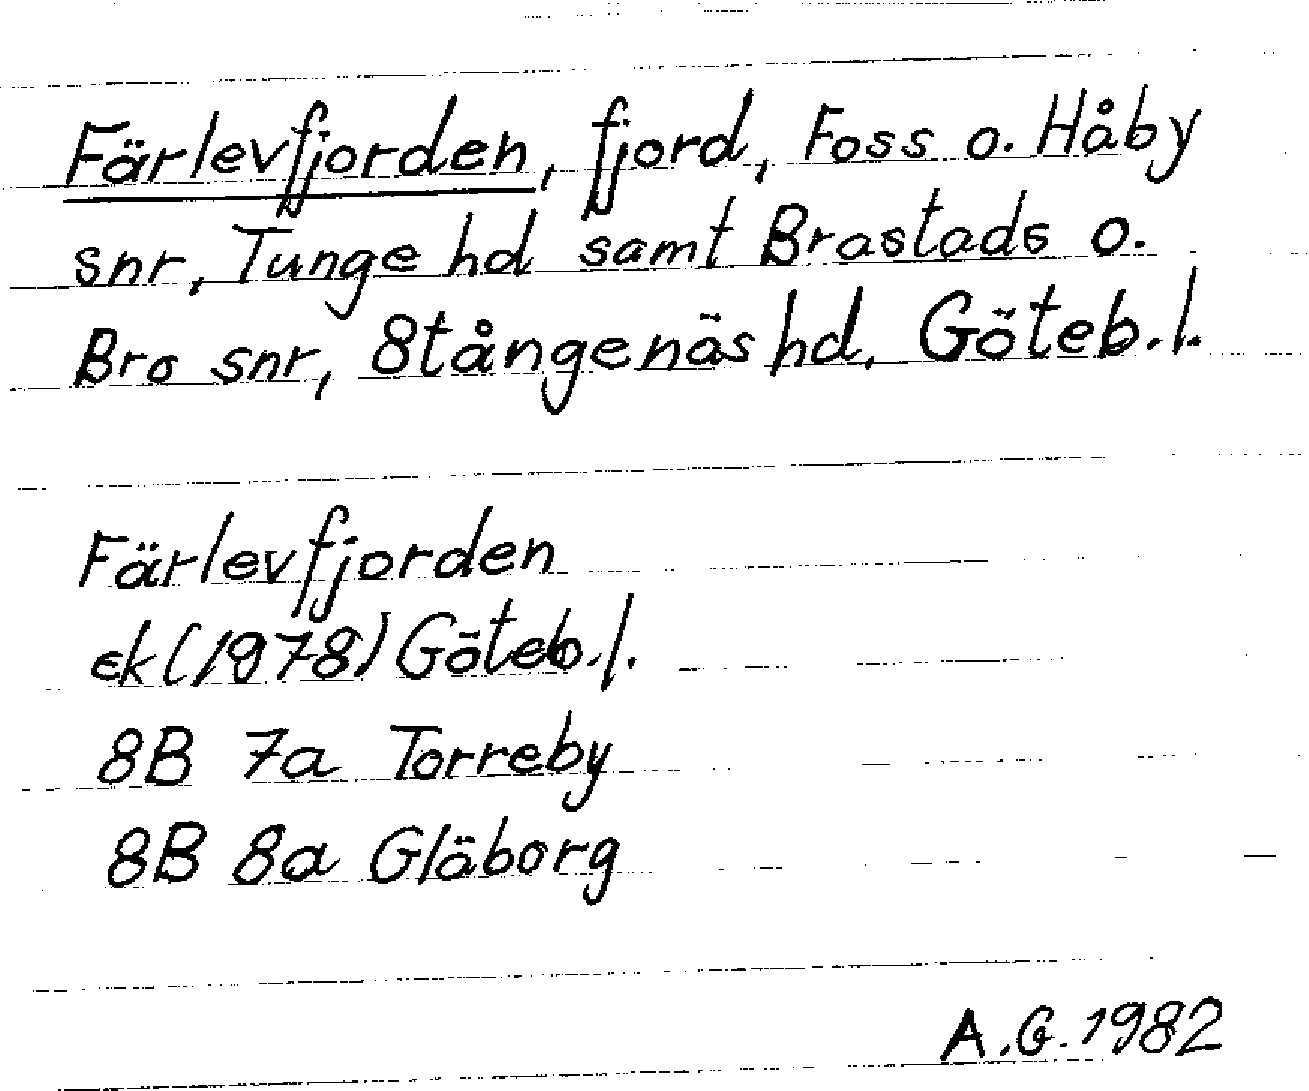 Färlevfjorden, fjord, Foss o. Håby
snr, Tunge hd samt Brastads o.
Bro snr, Stångenäs hd, Göteb.l.
Färlevfjorden
ek (1978) Göteb.l.
8B 7a Torreby
8B 8a Gläborg
A.G. 1982